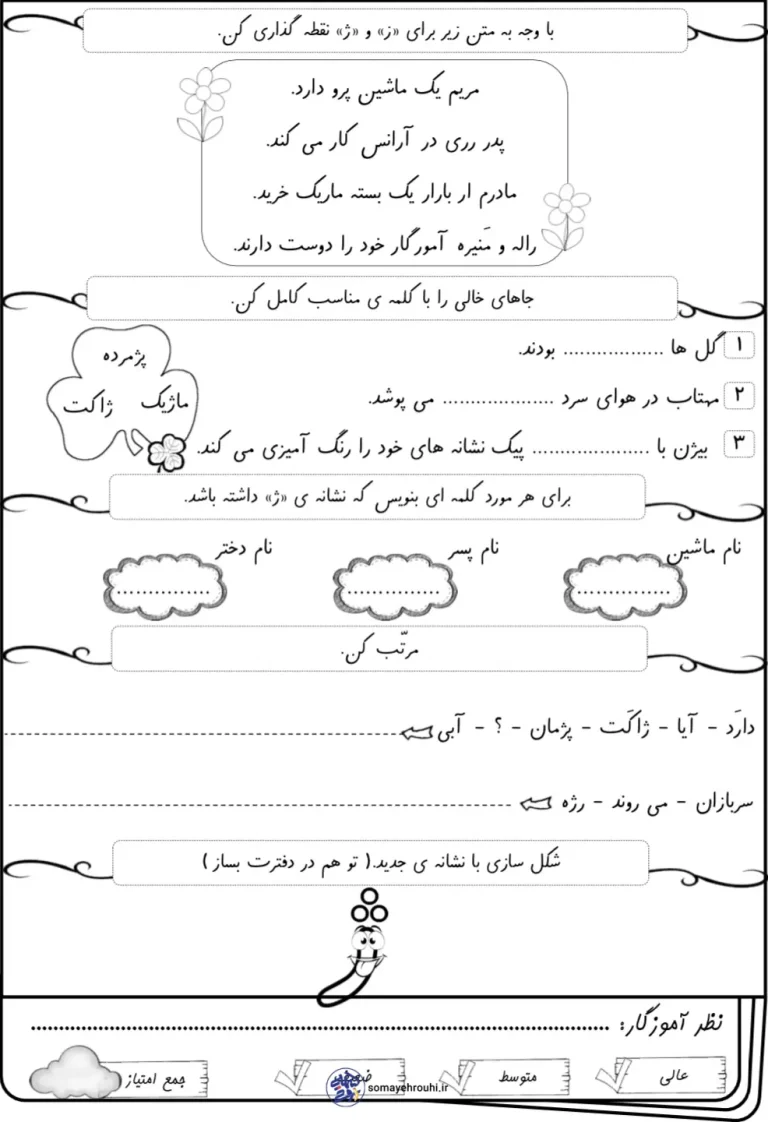 با وجه به متن زیر برای «ز» و «ژ» نقطه گذاری کن.
مریم یک ماشین پرو دارد.
پدر رری در آرانس کار می کند.
مادرم ار بارار یک بسته ماریک خرید.
راله و مَنیره آمورگار خود را دوست دارند.
جاهای خالی را با کلمه ی مناسب کامل کن.
۱ گل ها .................. بودند.
۲ مهتاب در هوای سرد .................... می پوشد.
۳ بیژن با ..................... پیک نشانه های خود را رنگ آمیزی می کند.
پژمرده
ماژیک ژاکت
برای هر مورد کلمه ای بنویس که نشانه ی «ژ» داشته باشد.
نام ماشین نام پسر نام دختر
............... ............... ...............
مرتّب کن.
دارَد - آیا - ژاکَت - پژمان - ؟ - آبی
سربازان - می روند - رژه
شکل سازی با نشانه ی جدید.( تو هم در دفترت بساز )
نظر آموزگار: ........................................................................
عالی متوسط جمع امتیاز
somayehrouhi.ir